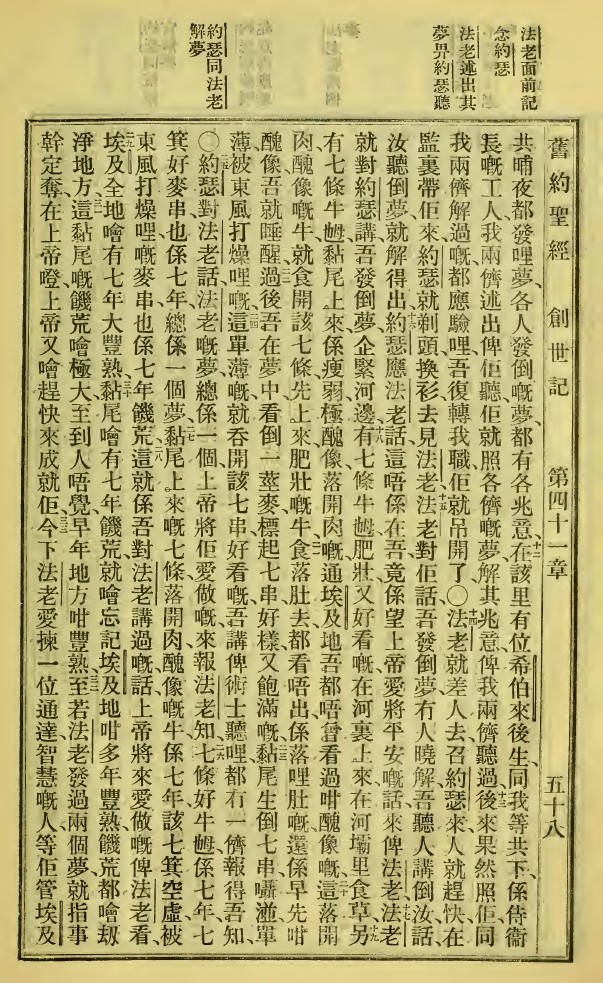 舊約聖經 創世記 第四十一章 五十八
法老面前記
念約瑟
法老述出其
夢畀約瑟聽
約瑟同法老
解夢
共晡夜都發哩夢、各人發倒嘅夢、都有各兆意、十二在該里有位希伯來後生、同我等共下、係侍衞
長嘅工人、我兩儕述出俾佢聽、佢就照各儕嘅夢、解其兆意俾我兩儕聽過、十三後來果然照佢同
我兩儕解過嘅都應驗哩、吾復轉我職、佢就吊開了、〇十四法老就差人去召約瑟來、人就趕快在
監裏帶佢來、約瑟就剃頭換衫、去見法老、十五法老對佢話、吾發倒夢、有人曉解、吾聽人講倒汝話、
汝聽倒夢就解得出、十六約瑟應法老話、這唔係在吾、竟係望上帝愛將平安嘅話來俾法老、十七法老
就對約瑟講、吾發倒夢、企緊河邊、十八有七條牛𡜵、肥壯又好看嘅、在河裏上來、在河壩里食草、十九另
有七條牛𡜵黏尾上來、係瘦弱極醜像、落開肉嘅、通埃及地吾都唔曾看過咁醜像嘅、二十這落開
肉醜像嘅牛、就食開該七條先上來肥壯嘅牛、二一食落肚去、都看唔出係落哩肚嘅、還係早先咁
醜像、吾就睡醒過後、二二吾在夢中看倒一莖麥、標起七串好樣又飽滿嘅、二三黏尾生倒七串囁𣶏單
薄、被東風打燥哩嘅、二四這單薄嘅就吞開該七串好看嘅、吾講俾術士聽哩、都冇一儕報得吾知、
〇二五約瑟對法老話、法老嘅夢總係一個、上帝將佢愛做嘅來報法老知、二六七條好牛𡜵係七年、七
箕好麥串也係七年、總係一個夢、二七黏尾上來嘅七條落開肉醜像嘅牛係七年、該七箕空虛被
東風打燥哩嘅麥串、也係七年饑荒、二八這就係吾對法老講過嘅話、上帝將來愛做嘅俾法老看、
二九埃及全地噲有七年大豐熟、三十黏尾噲有七年饑荒、就噲忘記埃及地咁多年豐熟、饑荒都噲刼
淨地方、三一這黏尾嘅饑荒噲極大、至到人唔覺早年地方咁豐熟、三二至若法老發過兩個夢、就指事
幹定奪在上帝嘜、上帝又噲趕快來成就佢、三三今下法老愛揀一位通達智慧嘅人、等佢管埃及